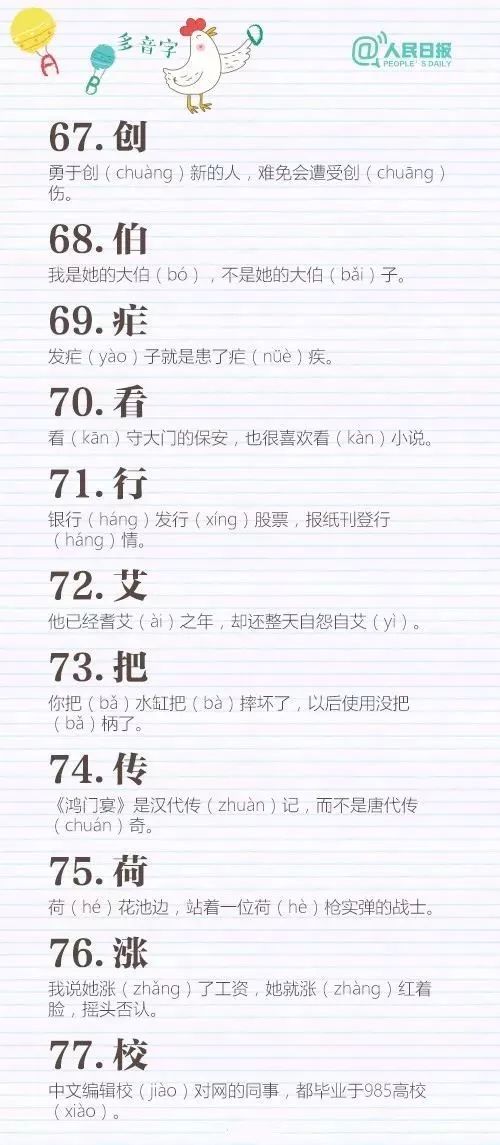 A
B
多音字
@人民日报
PEOPLE'S DAILY
67.创
勇于创（chuàng）新的人，难免会遭受创（chuāng）
伤。
68.伯
我是她的大伯（bó），不是她的大伯（bǎi）子。
69.疟
发疟（yào）子就是患了疟（nüè）疾。
70.看
看（kān）守大门的保安，也很喜欢看（kàn）小说。
71.行
银行（háng）发行（xíng）股票，报纸刊登行
（háng）情。
72.艾
他已经耆艾（ài）之年，却还整天自怨自艾（yì）。
73.把
你把（bǎ）水缸把（bà）摔坏了，以后使用没把
（bǎ）柄了。
74.传
《鸿门宴》是汉代传（zhuàn）记，而不是唐代传
（chuán）奇。
75.荷
荷（hé）花池边，站着一位荷（hè）枪实弹的战士。
76.涨
我说她涨（zhǎng）了工资，她就涨（zhàng）红着
脸，摇头否认。
77.校
中文编辑校（jiào）对网的同事，都毕业于985高校
（xiào）。